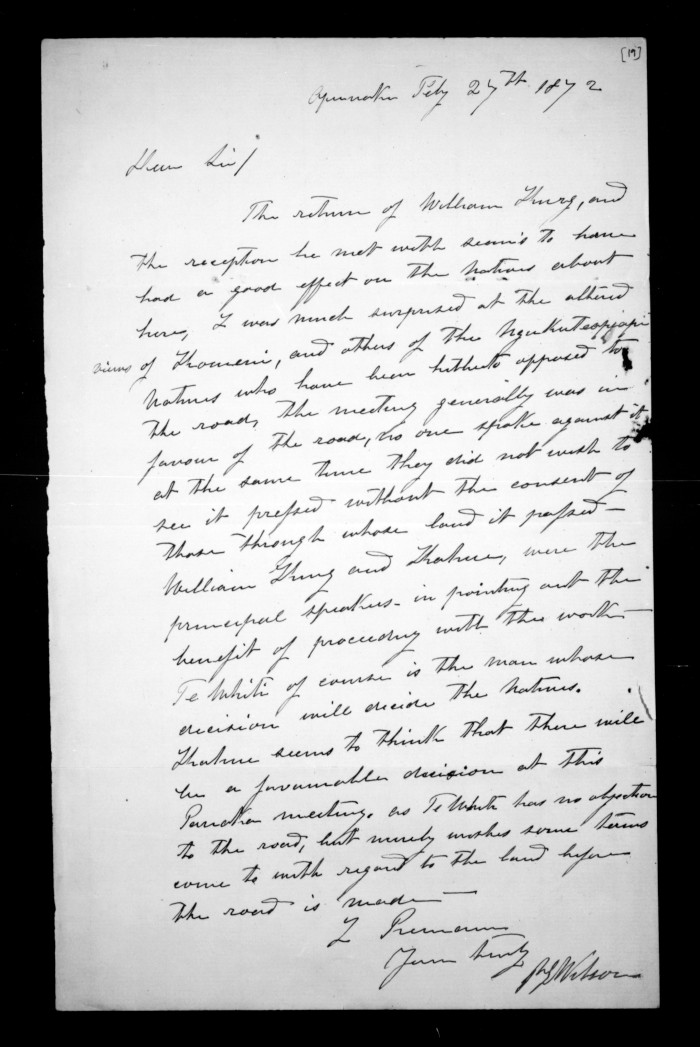 [19]
Opunake Feby 27th 1872
Dear Sir/
The return of William King, and
the reception he met with seem's to have
had a good effect on the Natives about
here, I was much surprised at the altered
views of Komene, and others of the Ngakuteapiapi
Natives who have been hitherto opposed to
the road, the meeting generally was in
favour of the road, no one spoke against it
at the same time they did not wish to
see it pressed without the consent of
those through whose land it passed —
William King and Thakue, were the
principal speakers in pointing out the
benefit of proceeding with the work —
Te Whiti of course is the man whose
decision will decide the Natives.
seems to think that there will
be a favourable decision at this
Parihaka meeting. as Te Whiti has no objection
to the road, but merely wishes some terms
come to with regard to the land before
the road is made —
I Remain
Yours truly
Wilson